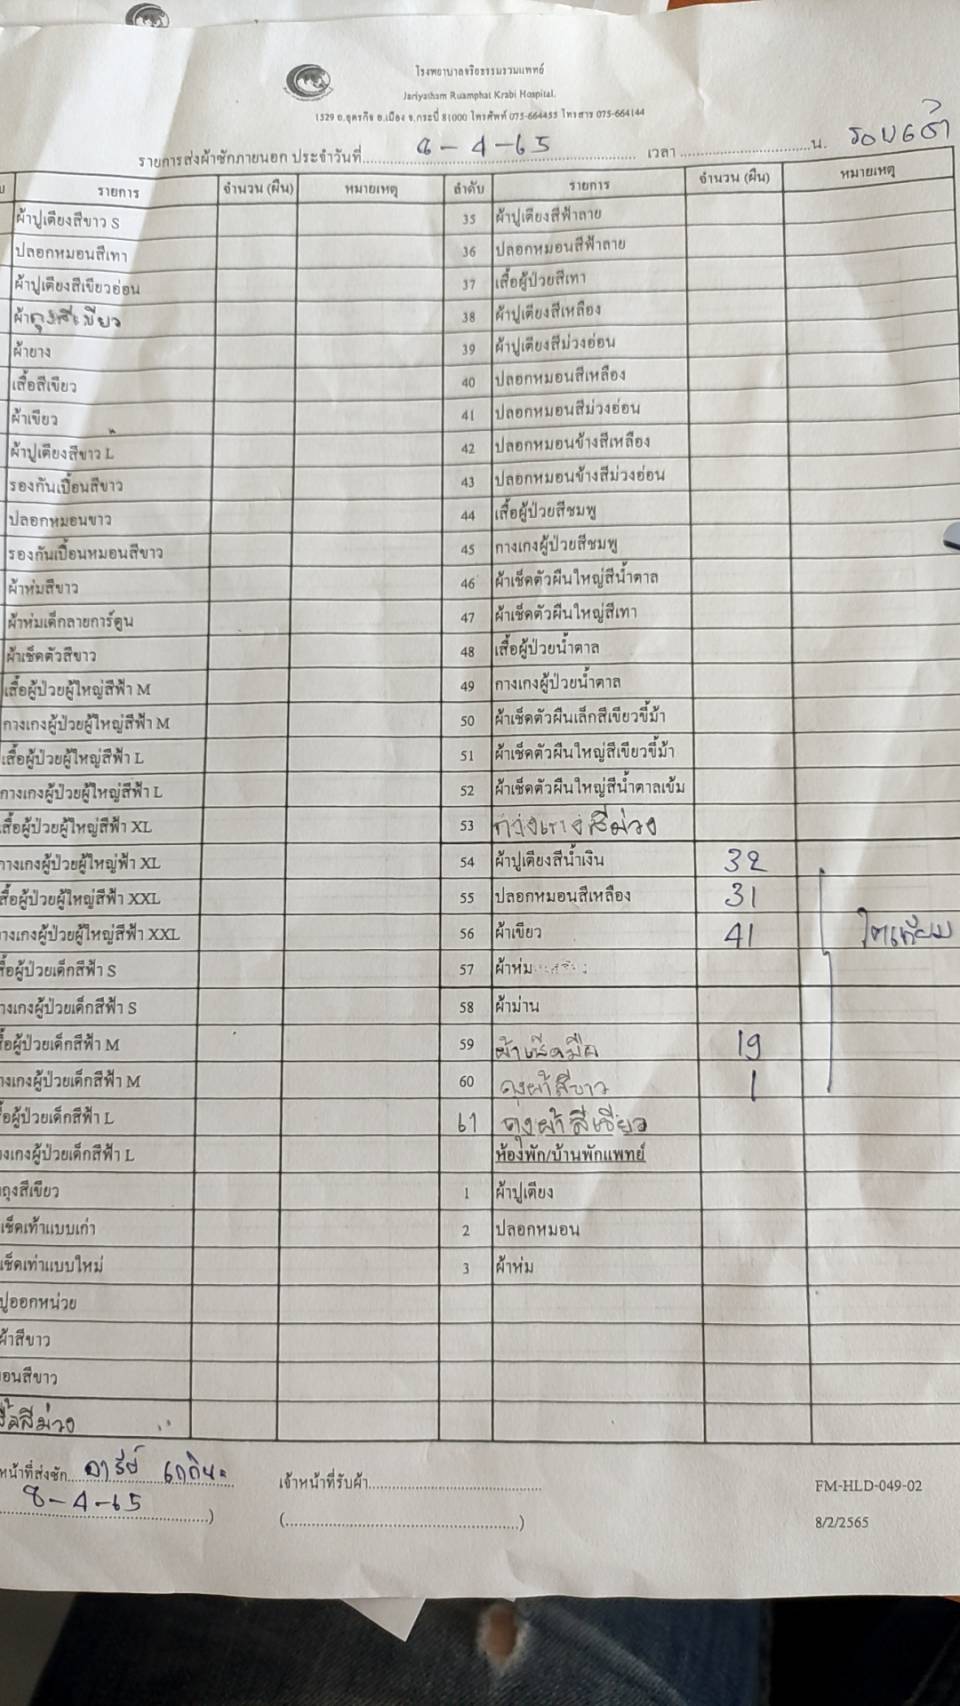 โรงพยาบาลจริยธรรมรวมแพทย์
Jariyatham Ruamphat Krabi Hospital.
1529 ถ.อุตรกิจ อ.เมือง จ.กระบี่ 81000 โทรศัพท์ 075-664455 โทรสาร 075-664144
รายการส่งผ้าซักภายนอก ประจำวันที่ 8-4-65 เวลา น. รอบเช้า
รายการ จำนวน (ผืน) หมายเหตุ ลำดับ รายการ จำนวน (ผืน) หมายเหตุ
ผ้าปูเตียงสีขาว S 35 ผ้าปูเตียงสีฟ้าลาย
ปลอกหมอนสีเทา 36 ปลอกหมอนสีฟ้าลาย
ผ้าปูเตียงสีเขียวอ่อน 37 เสื้อผู้ป่วยสีเทา
ผ้าถุงสีเขียว 38 ผ้าปูเตียงสีเหลือง
ผ้ายาง 39 ผ้าปูเตียงสีม่วงอ่อน
เสื้อสีเขียว 40 ปลอกหมอนสีเหลือง
ผ้าเขียว 41 ปลอกหมอนสีม่วงอ่อน
ผ้าปูเตียงสีขาว L 42 ปลอกหมอนข้างสีเหลือง
รองกันเปื้อนสีขาว 43 ปลอกหมอนข้างสีม่วงอ่อน
ปลอกหมอนขาว 44 เสื้อผู้ป่วยสีชมพู
รองกันเปื้อนหมอนสีขาว 45 กางเกงผู้ป่วยสีชมพู
ผ้าห่มสีขาว 46 ผ้าเช็ดตัวผืนใหญ่สีน้ำตาล
ผ้าห่มเด็กลายการ์ตูน 47 ผ้าเช็ดตัวผืนใหญ่สีเทา
ผ้าเช็ดตัวสีขาว 48 เสื้อผู้ป่วยน้ำตาล
เสื้อผู้ป่วยผู้ใหญ่สีฟ้า M 49 กางเกงผู้ป่วยน้ำตาล
กางเกงผู้ป่วยผู้ใหญ่สีฟ้า M 50 ผ้าเช็ดตัวผืนเล็กสีเขียวขี้ม้า
เสื้อผู้ป่วยผู้ใหญ่สีฟ้า L 51 ผ้าเช็ดตัวผืนใหญ่สีเขียวขี้ม้า
กางเกงผู้ป่วยผู้ใหญ่สีฟ้า L 52 ผ้าเช็ดตัวผืนใหญ่สีน้ำตาลเข้ม
สื้อผู้ป่วยผู้ใหญ่สีฟ้า XL 53 กางเกงสีม่วง
างเกงผู้ป่วยผู้ใหญ่ฟ้า XL 54 ผ้าปูเตียงสีน้ำเงิน 32
สื้อผู้ป่วยผู้ใหญ่สีฟ้า XXL 55 ปลอกหมอนสีเหลือง 31
างเกงผู้ป่วยผู้ใหญ่สีฟ้า XXL 56 ผ้าเขียว 41 ไตเทียม
สื้อผู้ป่วยเด็กสีฟ้า S 57 ผ้าห่ม
างเกงผู้ป่วยเด็กสีฟ้า S 58 ผ้าม่าน
สื้อผู้ป่วยเด็กสีฟ้า M 59 ผ้าเช็ดมือ 19
างเกงผู้ป่วยเด็กสีฟ้า M 60 ถุงผ้าสีขาว 1
สื้อผู้ป่วยเด็กสีฟ้า L 61 ถุงผ้าสีเขียว
างเกงผู้ป่วยเด็กสีฟ้า L ห้องพัก/บ้านพักแพทย์
ถุงสีเขียว 1 ผ้าปูเตียง
เช็ดเท้าแบบเก่า 2 ปลอกหมอน
เช็ดเท่าแบบใหม่ 3 ผ้าห่ม
ปูออกหน่วย
ผ้าสีขาว
อนสีขาว
สื้อสีม่วง
หน้าที่ส่งซัก อารีย์ เจ้าหน้าที่รับผ้า FM-HLD-049-02
8-4-65 ) ( ) 8/2/2565